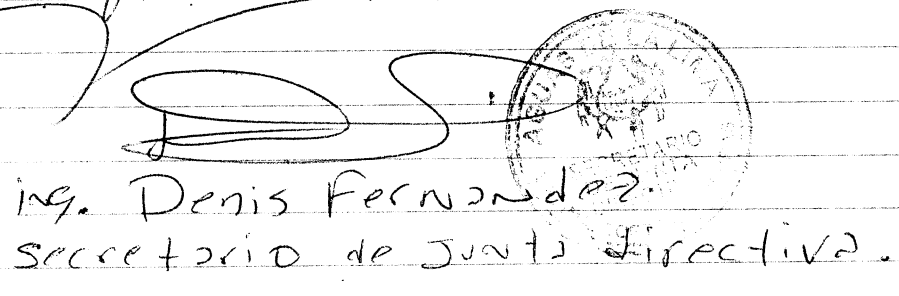 SECRETARIO
ing. Denis Fernandez.
secretario de Junta directiva.